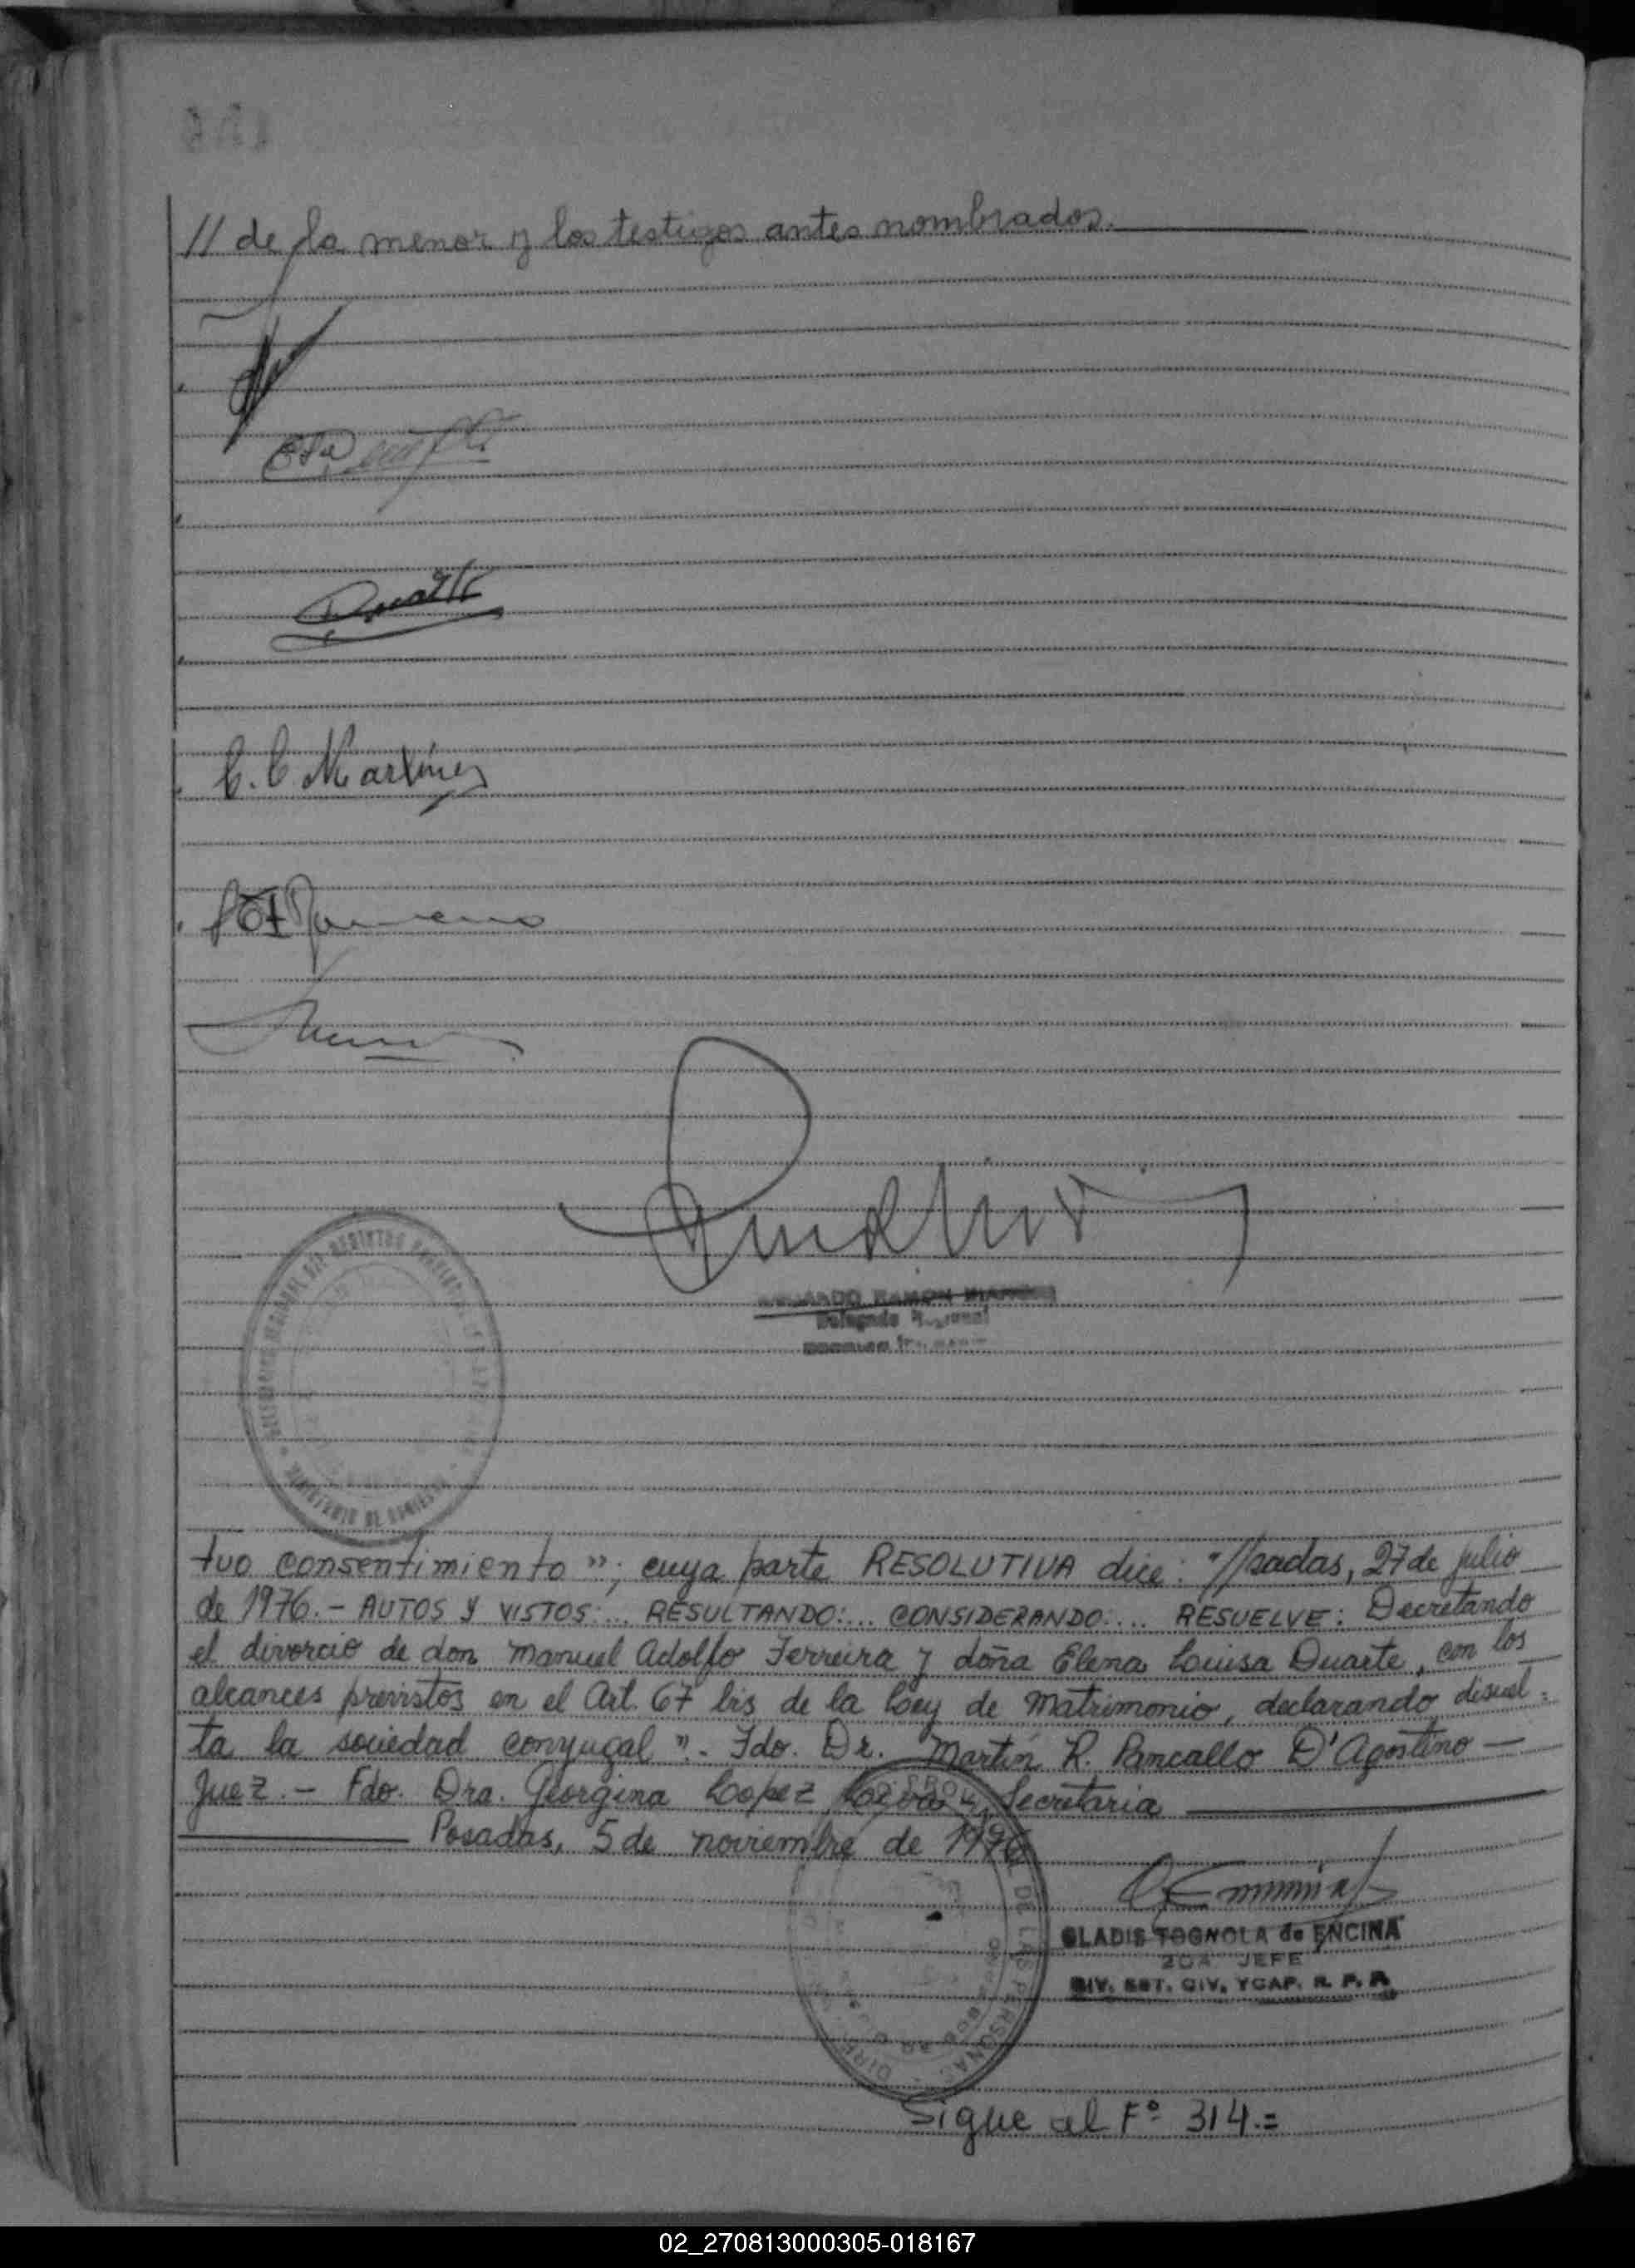 // de la menor y los testigos antes nombrados.
C. C. Martinez
RAMON
Delegado
tuo consentimiento"; cuya parte RESOLUTIVA dice: "Posadas, 27 de julio
de 1976.- AUTOS Y VISTOS:... RESULTANDO:... CONSIDERANDO:... RESUELVE: Decretando
el divorcio de don Manuel Adolfo Ferreira y doña Elena Luisa Duarte, con los
alcances previstos en el Art. 67 bis de la Ley de Matrimonio, declarando disuel=
ta la sociedad conyugal".- Fdo. Dr. Martín R. Pancallo D'Agostino -
Juez.- Fdo. Dra. Georgina Lopez Secretaria
Posadas, 5 de noviembre de 1976
GLADIS TOGNOLA de ENCINA
2DA JEFE
DIV. EST. CIV. YCAP. R. P. P.
DE LAS PERSONAS
Sigue al Fº 314.=
02_270813000305-018167